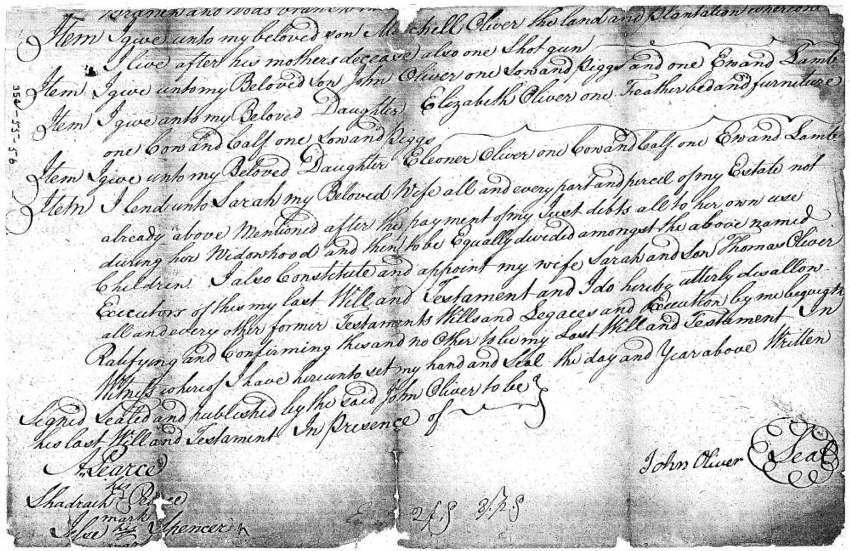 Item I give unto my beloved son Mitchell Oliver the land and Plantation whereon
I live after his mothers decease also one Shot gun
Item I give unto my Beloved Son John Oliver one Sow and Piggs and one Ew and Lamb
Item I give unto my Beloved Daughter Elizabeth Oliver one Feather bed and furniture
one Cow and Calf one Sow and Piggs
Item I give unto my Beloved Daughter Eleoner Oliver one Cow and Calf one Ew and Lamb
Item I lend unto Sarah my Beloved Wife all and every part and percil of my Estate not
already above Mentioned after the payment of my Just debts all to her own use
during her Widowhood and then to be Equally divided amongst the above named
Children I also Constitute and appoint my wife Sarah and Son Thomas Oliver
Executors of this my last Will and Testament and I do hereby utterly disallow
all and every other former Testaments Wills and Legaces and Execution by me
Ratifying and Confirming this and no Other to be my Last Will and Testament In
Witness whereof I have hereunto set my hand and Seal the day and Year above Written
Signed Sealed and published by the said John Oliver to be
his last Will and Testament In Presence of
John Oliver Seal
A Pearce
Shadrach his
mark
his Spencer